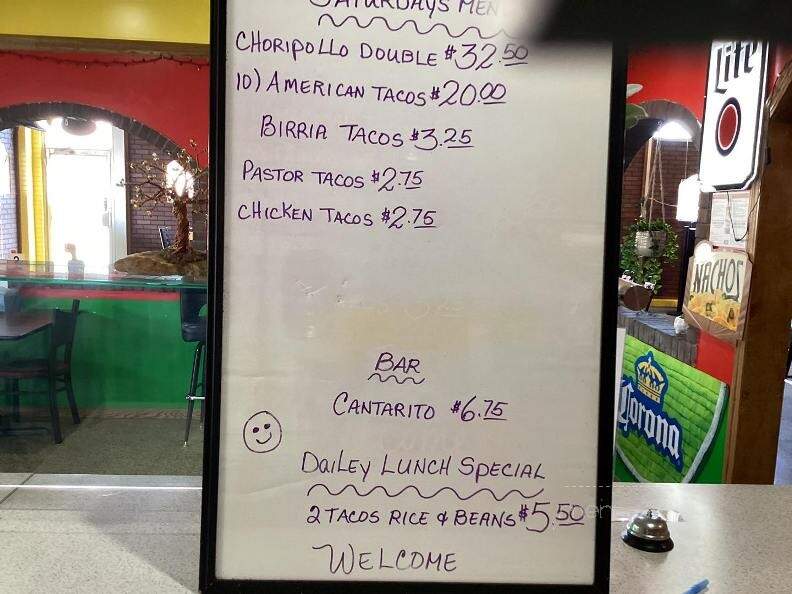 SATURDAYS MEN
CHORIPOLLO DOUBLE $32.50
10) AMERICAN TACOS $20.00
BIRRIA TACOS $3.25
PASTOR TACOS $2.75
CHICKEN TACOS $2.75
BAR
CANTARITO $6.75
DAiLEY LUNCH SPECIAL
2 TACOS RICE & BEANS $5.50
WELCOME
Lite
NACHOS
Corona